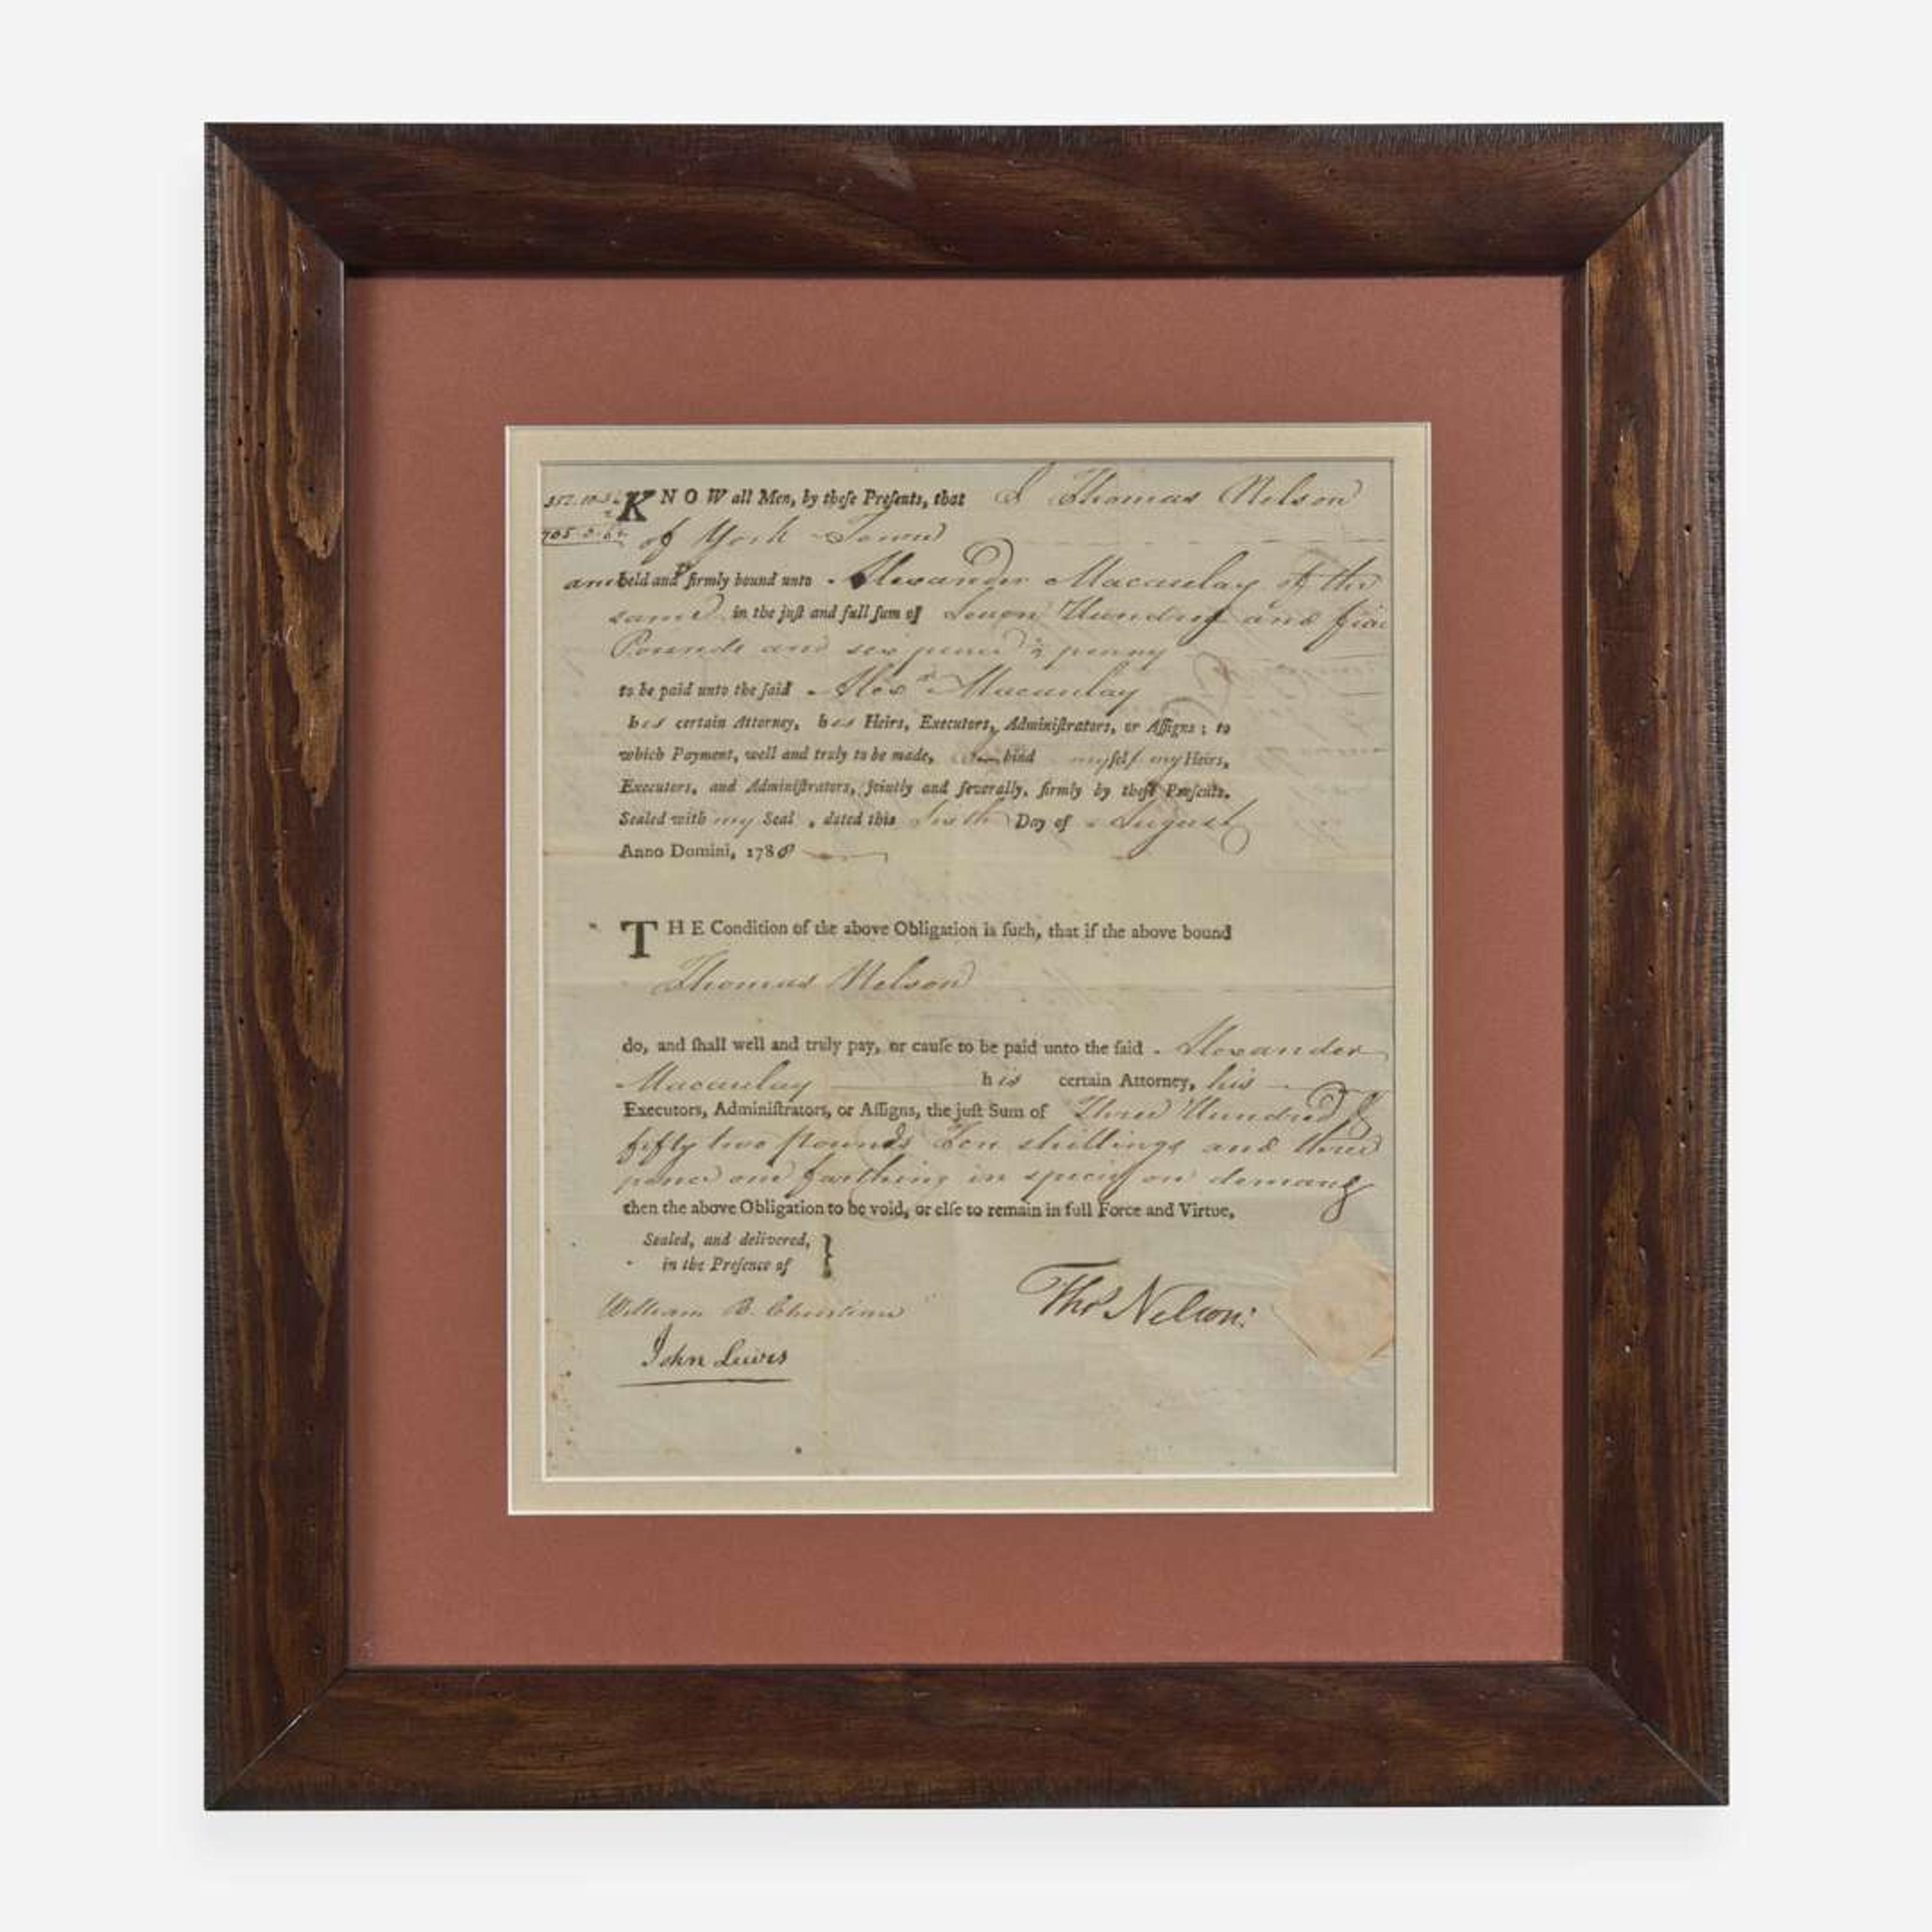 352..10..3¼ KNOW all Men, by theſe Preſents, that I Thomas Nelson
2
705..0..6½ of York Town
am held and firmly bound unto Alexander Macaulay of the
same in the juſt and full ſum of Seven Hundred and five
Pounds and six pence ½ penny
to be paid unto the ſaid Alexr Macaulay
his certain Attorney, his Heirs, Executors, Adminiſtrators, or Aſſigns; to
which Payment, well and truly to be made, I bind myſelf my Heirs,
Executors, and Adminiſtrators, jointly and ſeverally, firmly by theſe Preſents.
Sealed with my Seal, dated this Sixth Day of August
Anno Domini, 1786
THE Condition of the above Obligation is ſuch, that if the above bound
Thomas Nelson
do, and ſhall well and truly pay, or cauſe to be paid unto the ſaid Alexander
Macaulay his certain Attorney, his
Executors, Adminiſtrators, or Aſſigns, the juſt Sum of Three Hundred &
fifty two pounds Ten shillings and three
pence one farthing in specie on demand
then the above Obligation to be void, or elſe to remain in full Force and Virtue,
Sealed, and delivered,
in the Preſence of }
William B. Christian
Thos Nelson
John Lewis